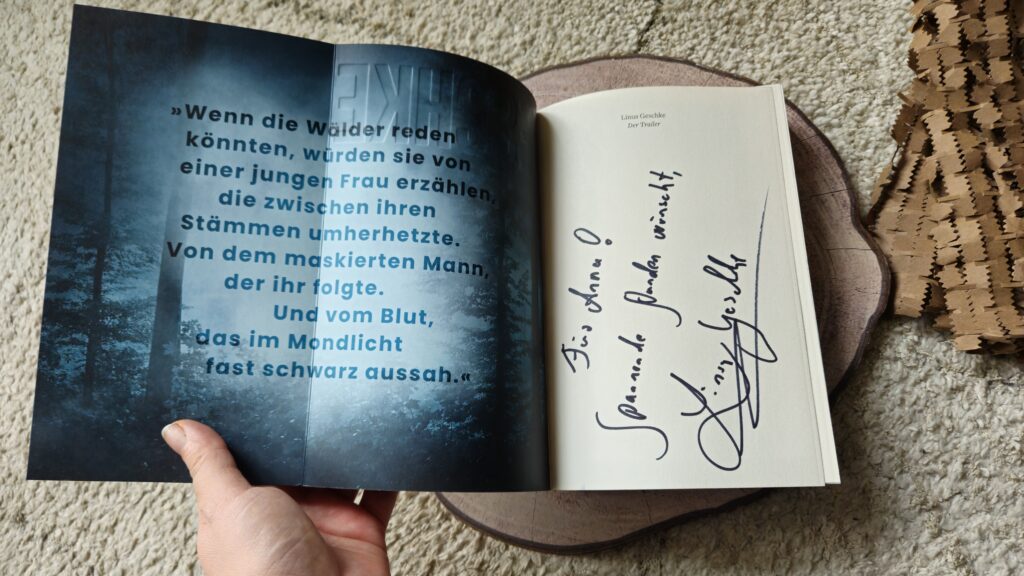 »Wenn die Wälder reden
könnten, würden sie von
einer jungen Frau erzählen,
die zwischen ihren
Stämmen umherhetzte.
Von dem maskierten Mann,
der ihr folgte.
Und vom Blut,
das im Mondlicht
fast schwarz aussah.«
Linus Geschke
Der Trailer
Für Anna!
Spannende Stunden wünscht,
Linus Geschke